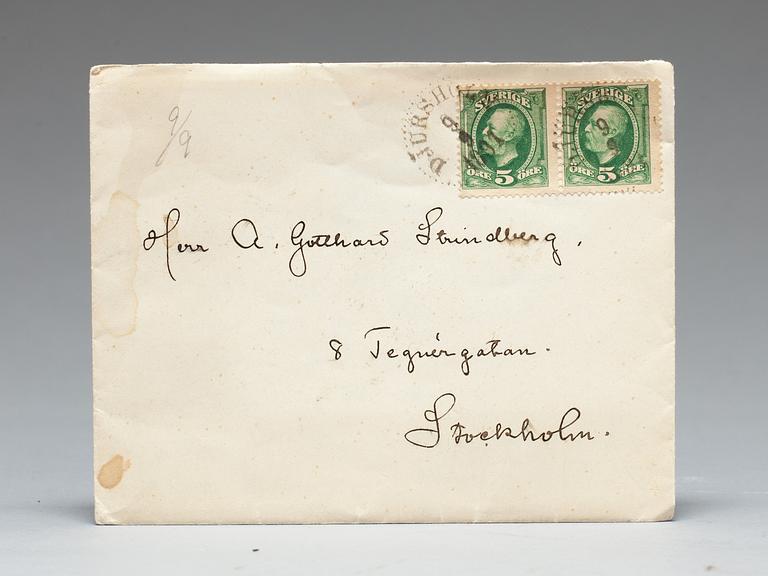 9/9
DJURSHO
9
9
1901
SVERIGE
ÖRE 5 ÖRE
SVERIGE
ÖRE 5 ÖRE
9
Herr A. Gotthard Strindberg,
8 Tegnérgatan.
Stockholm.